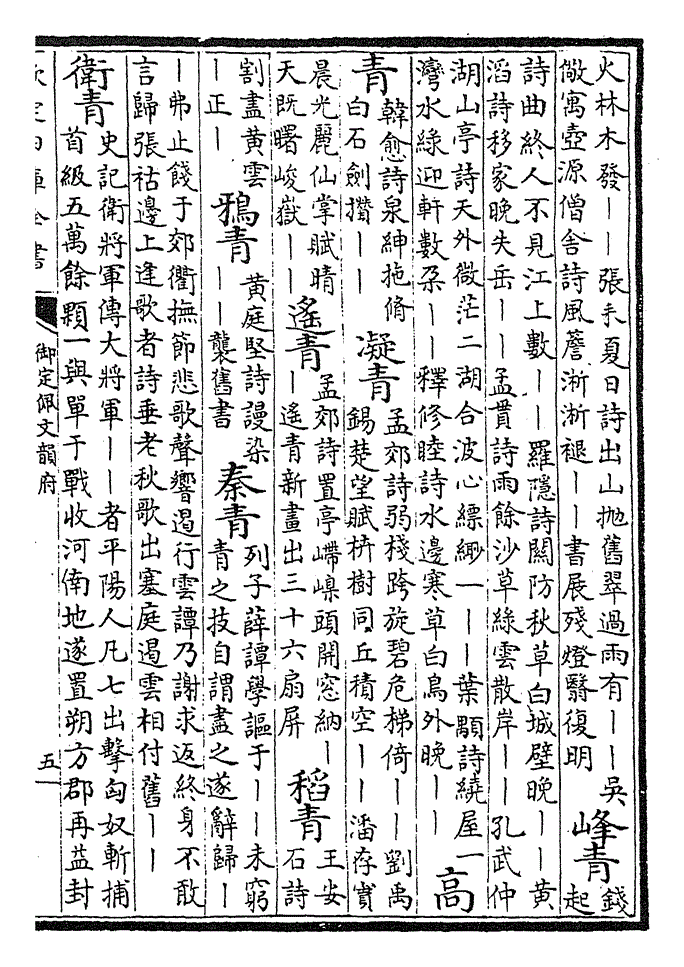 火林木發——張耒夏日詩出山拋舊翠過雨有——吳
儆寓壺源僧舍詩風簷淅淅褪——書展殘燈翳復明
峰青
錢
起
詩曲終人不見江上數——羅隱詩關防秋草白城壁晚——黄
滔詩移家晚失岳——孟貫詩雨餘沙草綠雲散岸——孔武仲
湖山亭詩天外微茫二湖合波心縹緲一——葉顒詩繞屋一
灣水綠迎軒數朶——釋修睦詩水邊寒草白鳥外晚——
高
青
韓愈詩泉紳拖脩
白石劍攢——
凝青
孟郊詩弱棧跨旋碧危梯倚——劉禹
錫楚望賦枿樹同丘積空——潘存實
晨光麗仙掌賦晴
天既曙峻嶽——
遙青
孟郊詩置亭嵽嵲頭開窓納—
—遙青新畫出三十六扇屏
稻青
王安
石詩
割盡黄雲
—正—
鴉青
黄庭堅詩謾染
——襲舊書
秦青
列子薛譚學謳于——未窮
青之技自謂盡之遂辭歸—
—弗止餞于郊衢撫節悲歌聲響遏行雲譚乃謝求返終身不敢
言歸張祜邊上逢歌者詩垂老秋歌出塞庭遏雲相付舊——
衛青
史記衛將軍傳大將軍——者平陽人凡七出擊匈奴斬捕
首級五萬餘顆一與單于戰收河南地遂置朔方郡再益封
欽定四庫全書
御定佩文韻府
五一